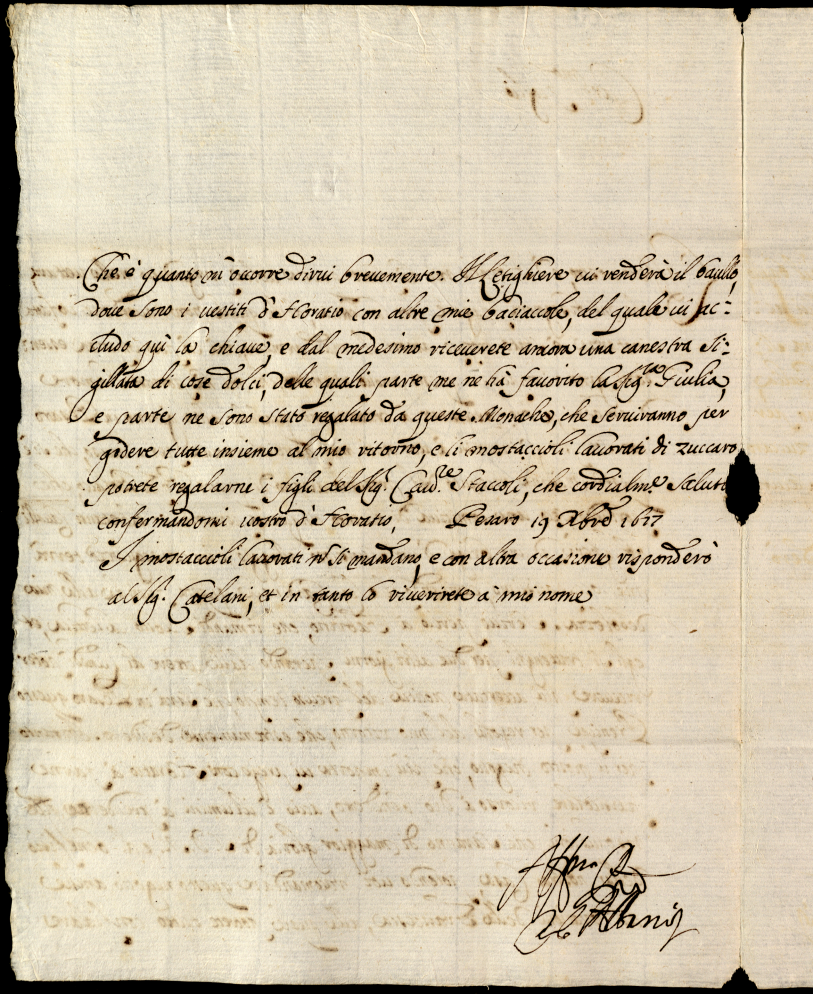 Che è quanto mi occorre dirui breuemente. Il Letighiere ui renderà il baullo,
doue sono i uestiti d'Horatio con altre mie bagiaccole, del quale ui ac-
cludo quì la chiaue, e dal medesimo riceuerete ancora una canestra si-
gillata di cose dolci, delle quali parte me ne hà fauorito la Sig.ra Giulia,
e parte ne sono stato regalato da queste Monache, che seruiranno per
godere tutte insieme al mio ritorno, e li mostaccioli lauorati di zuccaro
potrete regalarne i figli del Sig.r Cau.re Staccoli, che cordialm.te saluto
confermandomi uostro d'Horatio, Pesaro 19 Xbre 1677
I mostaccioli lauorati nō si mandano, e con altra occasione risponderò
al Sig.r Catelani, et in tanto lo riuerirete à mio nome
Albani